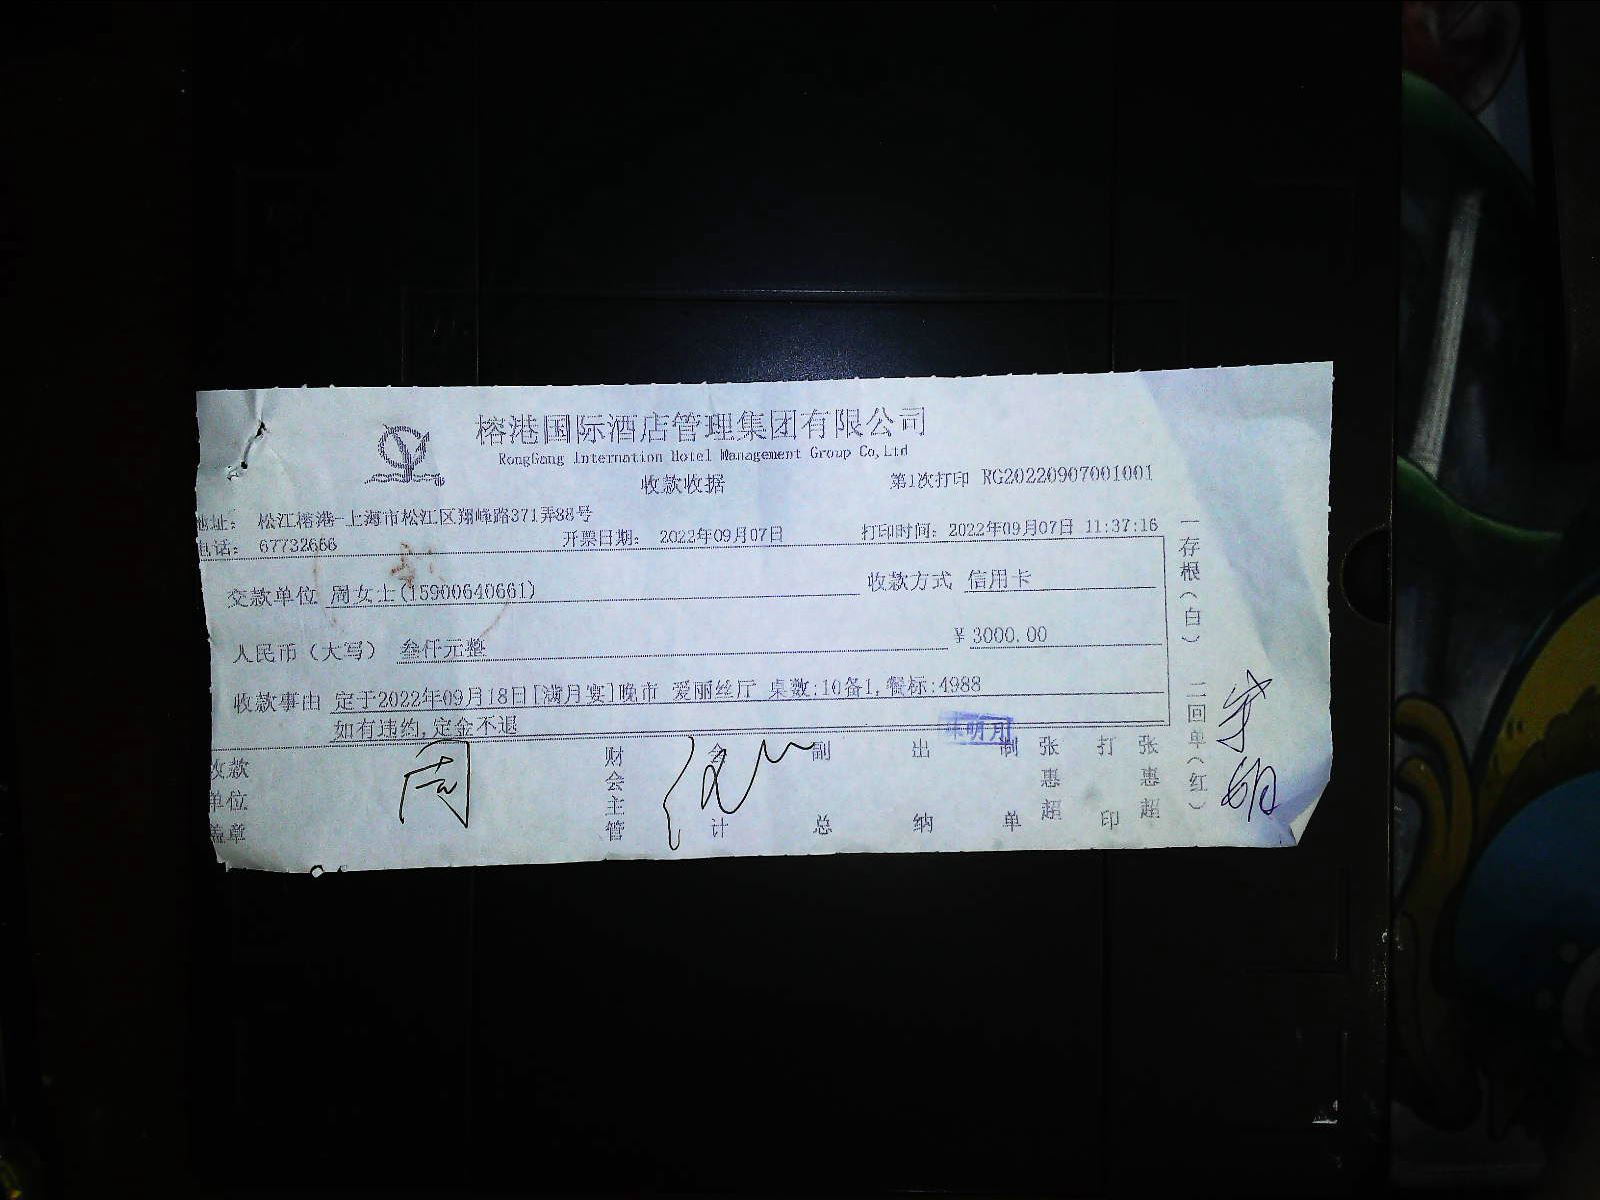 榕港国际酒店管理集团有限公司
RongGang Internation Hotel Management Group Co,Ltd
收款收据
第1次打印 RG20220907001001
地址： 松江榕港-上海市松江区翔峰路371弄88号
电话： 67732666
开票日期： 2022年09月07日
打印时间：2022年09月07日 11:37:16
交款单位 周女士(15900640661)
收款方式 信用卡
人民币（大写） 叁仟元整
¥ 3000.00
收款事由 定于2022年09月18日[满月宴]晚市 爱丽丝厅 桌数:10备1,餐标:4988
如有违约,定金不退
收款单位盖章
周
财会主管
会计
副总
出纳
明月
制单
张惠超
打印
张惠超
一存根（白）
二回单（红）